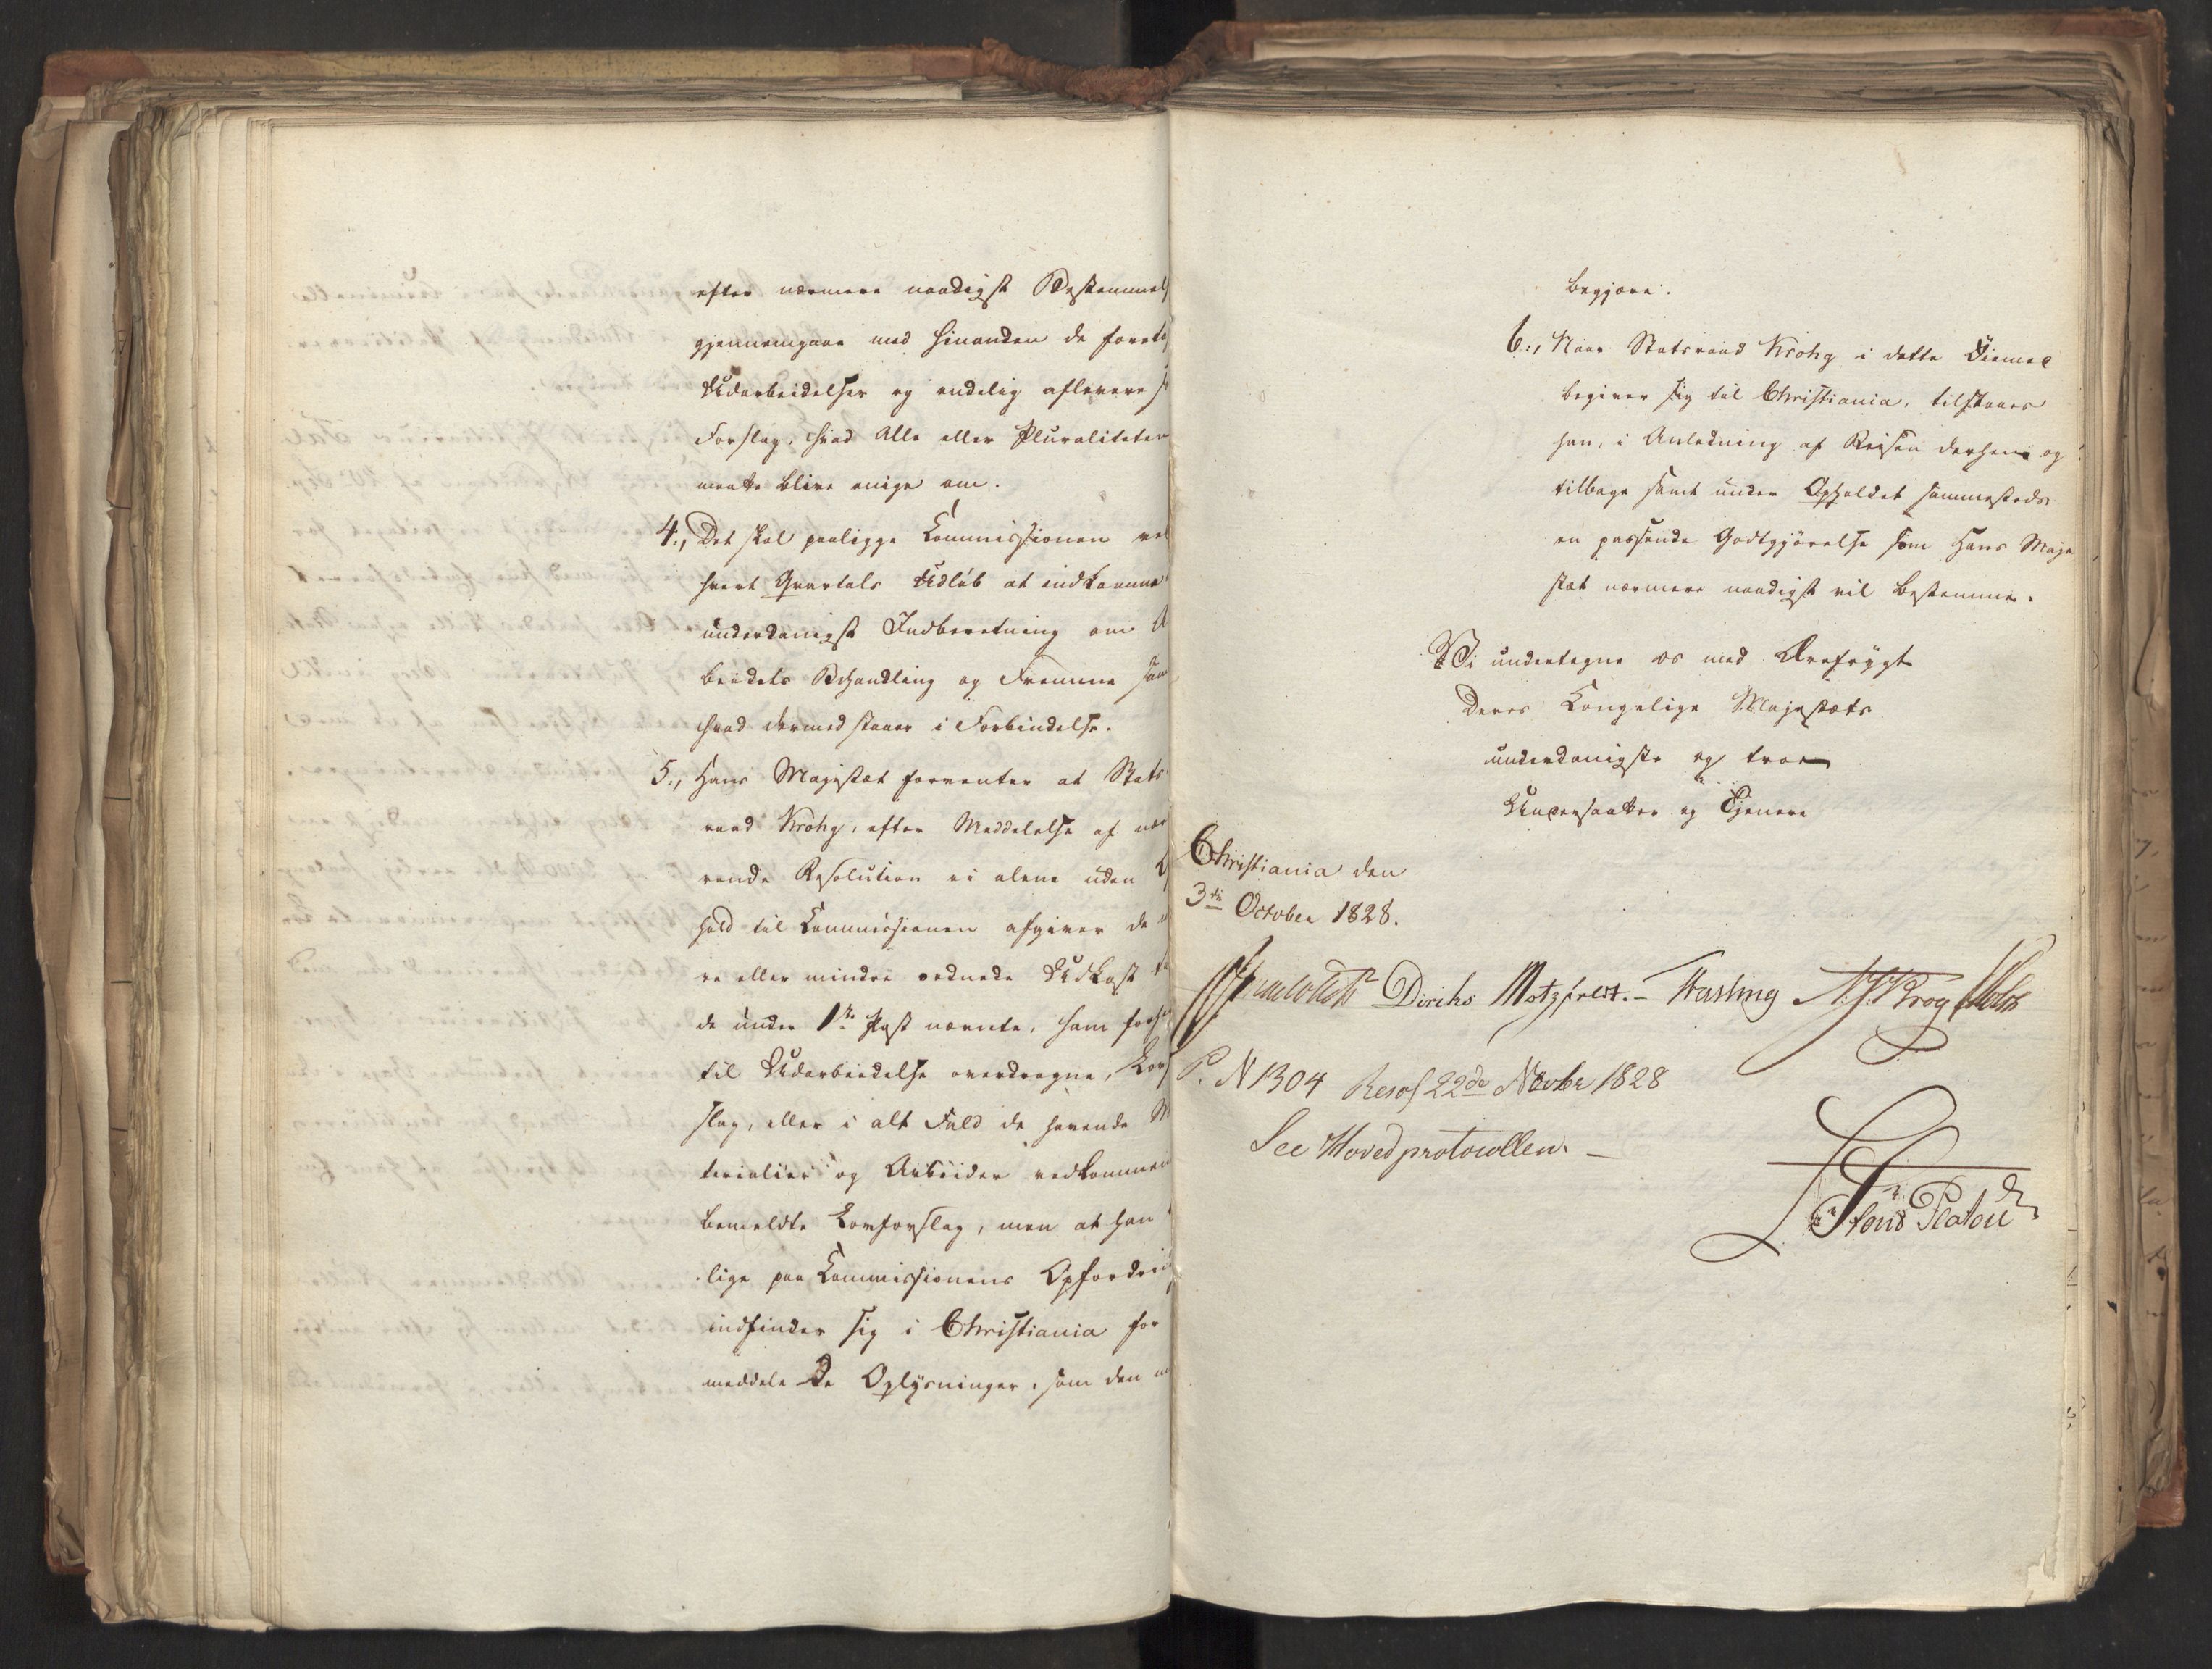 efter nærmere naadigst Bestemmels
gjennemgaae med hinanden de foreta
Udarbeidelser og endelig aflevere s
Forslag, hvad Alle eller Pluraliteten
maatte blive enige om.
4., Det skal paaligge Commissionen ved
hvert Qvartals Udløb at indkomme
underdanigst Indberetning om A
beidets Behandling og Fremme sam
hvad dermed staaer i Forbindelse.
5., Hans Majestæt forventer at Stats
raad Krohg, efter Meddelelse af nær
rende Resolution ei alene uden
hold til Commissionen afgiver de
re eller mindre ordnede Udkast
de under 1ste Post nævnte, ham
til Udarbeidelse overdragne, Lov
slag, eller i alt Fald de havende M
terialier og Arbeider vedkommen
bemeldte Lovforslag, men at han
lige paa Commissionens Opfordrin
indfinder sig i Christiania for
meddele de Oplysninger, som den
begjære.
6., Naar Statsraad Krohg i dette Øiemed
begiver sig til Christiania, tilstaaes
ham, i Anledning af Reisen derhen og
tilbage samt under Opholdet sammesteds
en passende Godtgjørelse som Hans Maje
stæt nærmere naadigst vil bestemme.
Vi undertegne os med Ærefrygt
Deres Kongelige Majestæts
underdanigste og troe
Undersaatter og Tjenere
Christiania den
3die October 1828.
Diriks Motzfeldt. Fasting Krog Holst
P. N 1304 Resol 22de Novbr 1828
See Hovedprotocollen. –
Platou